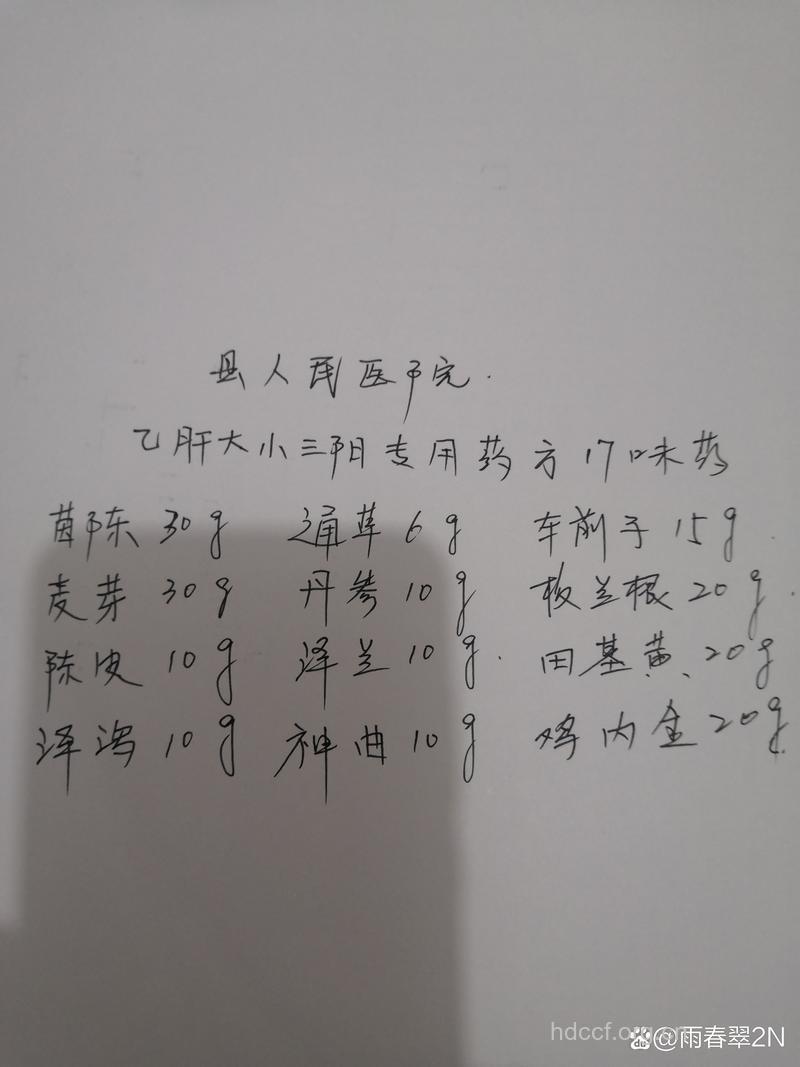 县人民医院.
乙肝大小三阳专用药方17味药
茵陈30g 通草6g 车前子15g.
麦芽30g 丹参10g 板兰根20g.
陈皮10g 泽兰10g. 田基黄、20g
泽泻10g 神曲10g 鸡内金20g.
hdccf.org.cn
Bai du @雨春翠2N